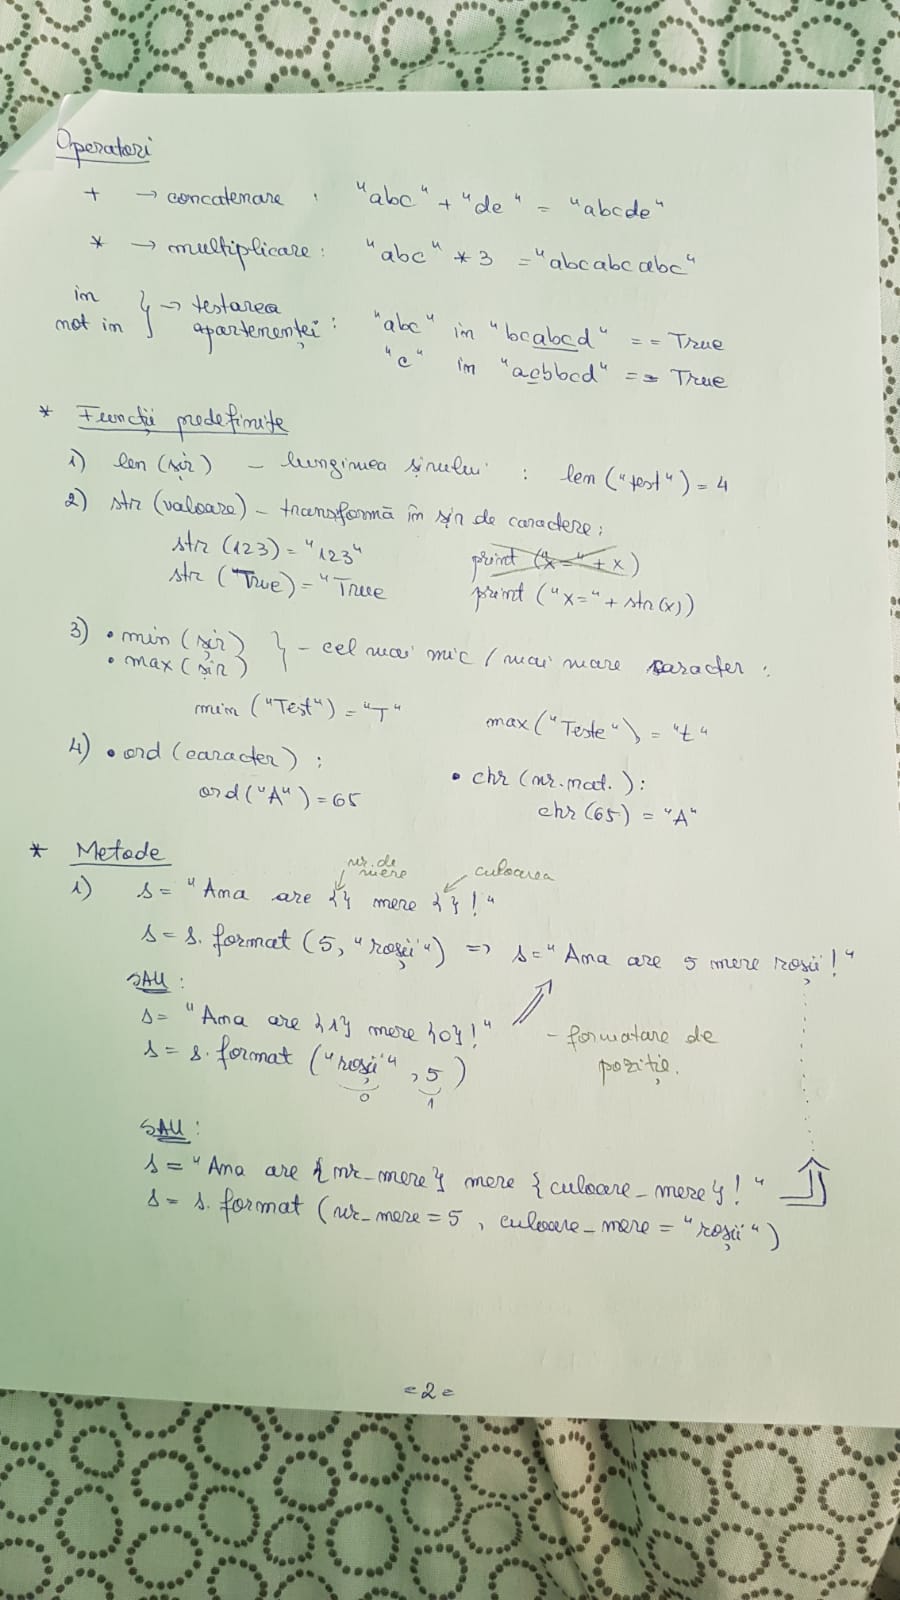 Operatori
+ → concatenare : "abc" + "de" = "abcde"
* → multiplicare : "abc" * 3 = "abcabcabc"
in
not in } → testarea apartenenței : "abc" in "bcabcd" == True
"c" in "acbbcd" == True
* Funcții predefinite
1) len (șir) – lungimea șirului : len ("test") = 4
2) str (valoare) – transformă în șir de caractere :
str (123) = "123" print ("x=" + x)
str ("True) = "True print ("x=" + str(x))
3) • min (șir)
• max (șir) } – cel mai mic / mai mare caracter :
min ("Test") = "T" max ("Teste") = "t"
4) • ord (caracter) : • chr (nr. nat.) :
ord ("A") = 65 chr (65) = "A"
* Metode
nr. de mere culoarea
1) s = "Ana are {} mere {}!"
s = s. format (5, "roșii") => s = "Ana are 5 mere roșii!"
SAU :
s = "Ana are {1} mere {0}!" – formatare de
s = s. format ("roșii", 5) poziție.
0 1
SAU :
s = "Ana are {nr_mere} mere {culoare_mere}!"
s = s. format (nr_mere = 5, culoare_mere = "roșii")
= 2 =